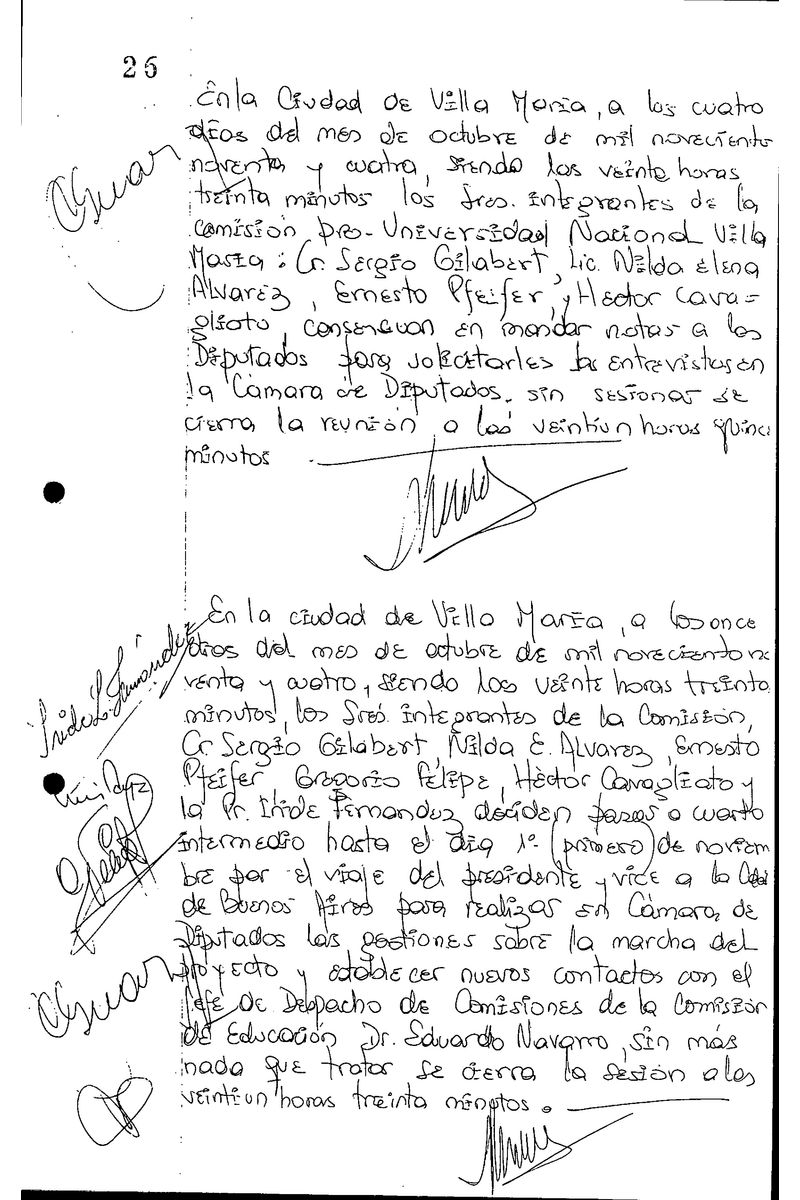 26
En la Ciudad de Villa María, a los cuatro
días del mes de octubre de mil noveciento
noventa y cuatro, siendo las veinte horas
treinta minutos los Sres. integrantes de la
Comisión pro-Universidad Nacional Villa
María: Cr. Sergio Gilabert, Lic. Nilda Elena
Alvarez, Ernesto Pfeifer, y Hector Cava=
glioto, consensuan en mandar notas a los
Diputados para solicitarles las entrevistas en
la Cámara de Diputados. sin sesionar se
cierra la reunión a las veintiun horas quince
minutos
En la ciudad de Villa María, a los once
días del mes de octubre de mil noveciento no
venta y cuatro, siendo las veinte horas treinta
minutos, los Sres. integrantes de la Comisión,
Cr Sergio Gilabert, Nilda E. Alvarez, Ernesto
Pfeifer, Gregorio Felipe, Héctor Cavagliato y
la Pr. Iride Fernandez deciden pasar a cuarto
intermedio hasta el día 1º (primero) de noviem
bre por el viaje del presidente y vice a la
de Buenos Aires para realizar en Cámara de
Diputados las gestiones sobre la marcha del
proyecto y establecer nuevos contactos con el
Jefe de Despacho de Comisiones de la Comisión
de Educación Dr. Eduardo Navarro, sin más
nada que tratar se cierra la sesión a las
veintiun horas treinta minutos.
Iride L. Fernández